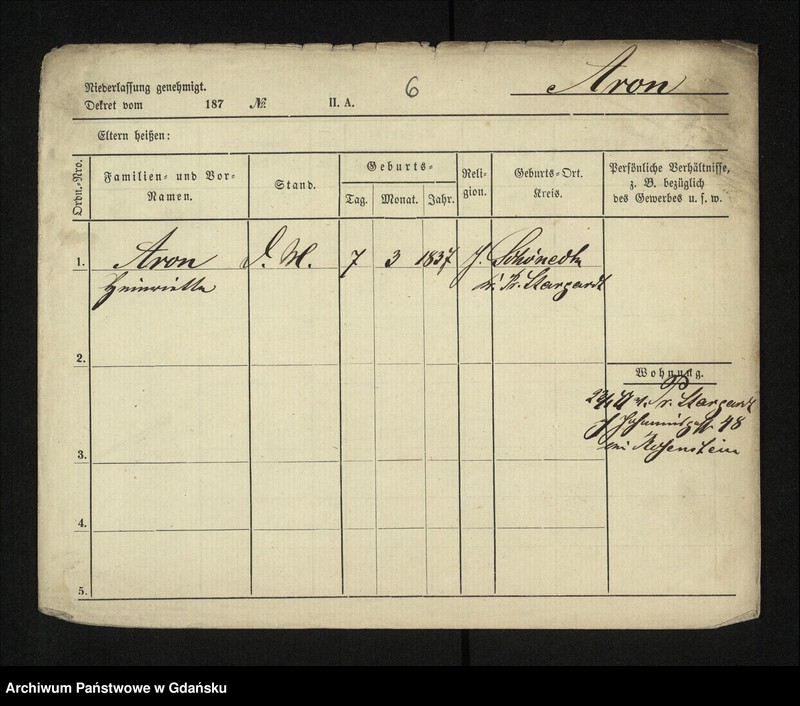 Niederlassung genehmigt.
6
Aron
Dekret vom 187 № II. A.
Eltern heißen:
Ordn.-Nro.
Familien- und Vor-
Namen.
Stand.
Geburts-
Tag. Monat. Jahr.
Reli-
gion.
Geburts-Ort.
Kreis.
Persönliche Verhältnisse,
z. B. bezüglich
des Gewerbes u. s. w.
1. Aron D. M. 7 3 1837 J.
Henriette Pr. Stargardt
2.
Wohnung.
Pr. Stargardt
48
3. bei Rosenstein
4.
5.
Archiwum Państwowe w Gdańsku